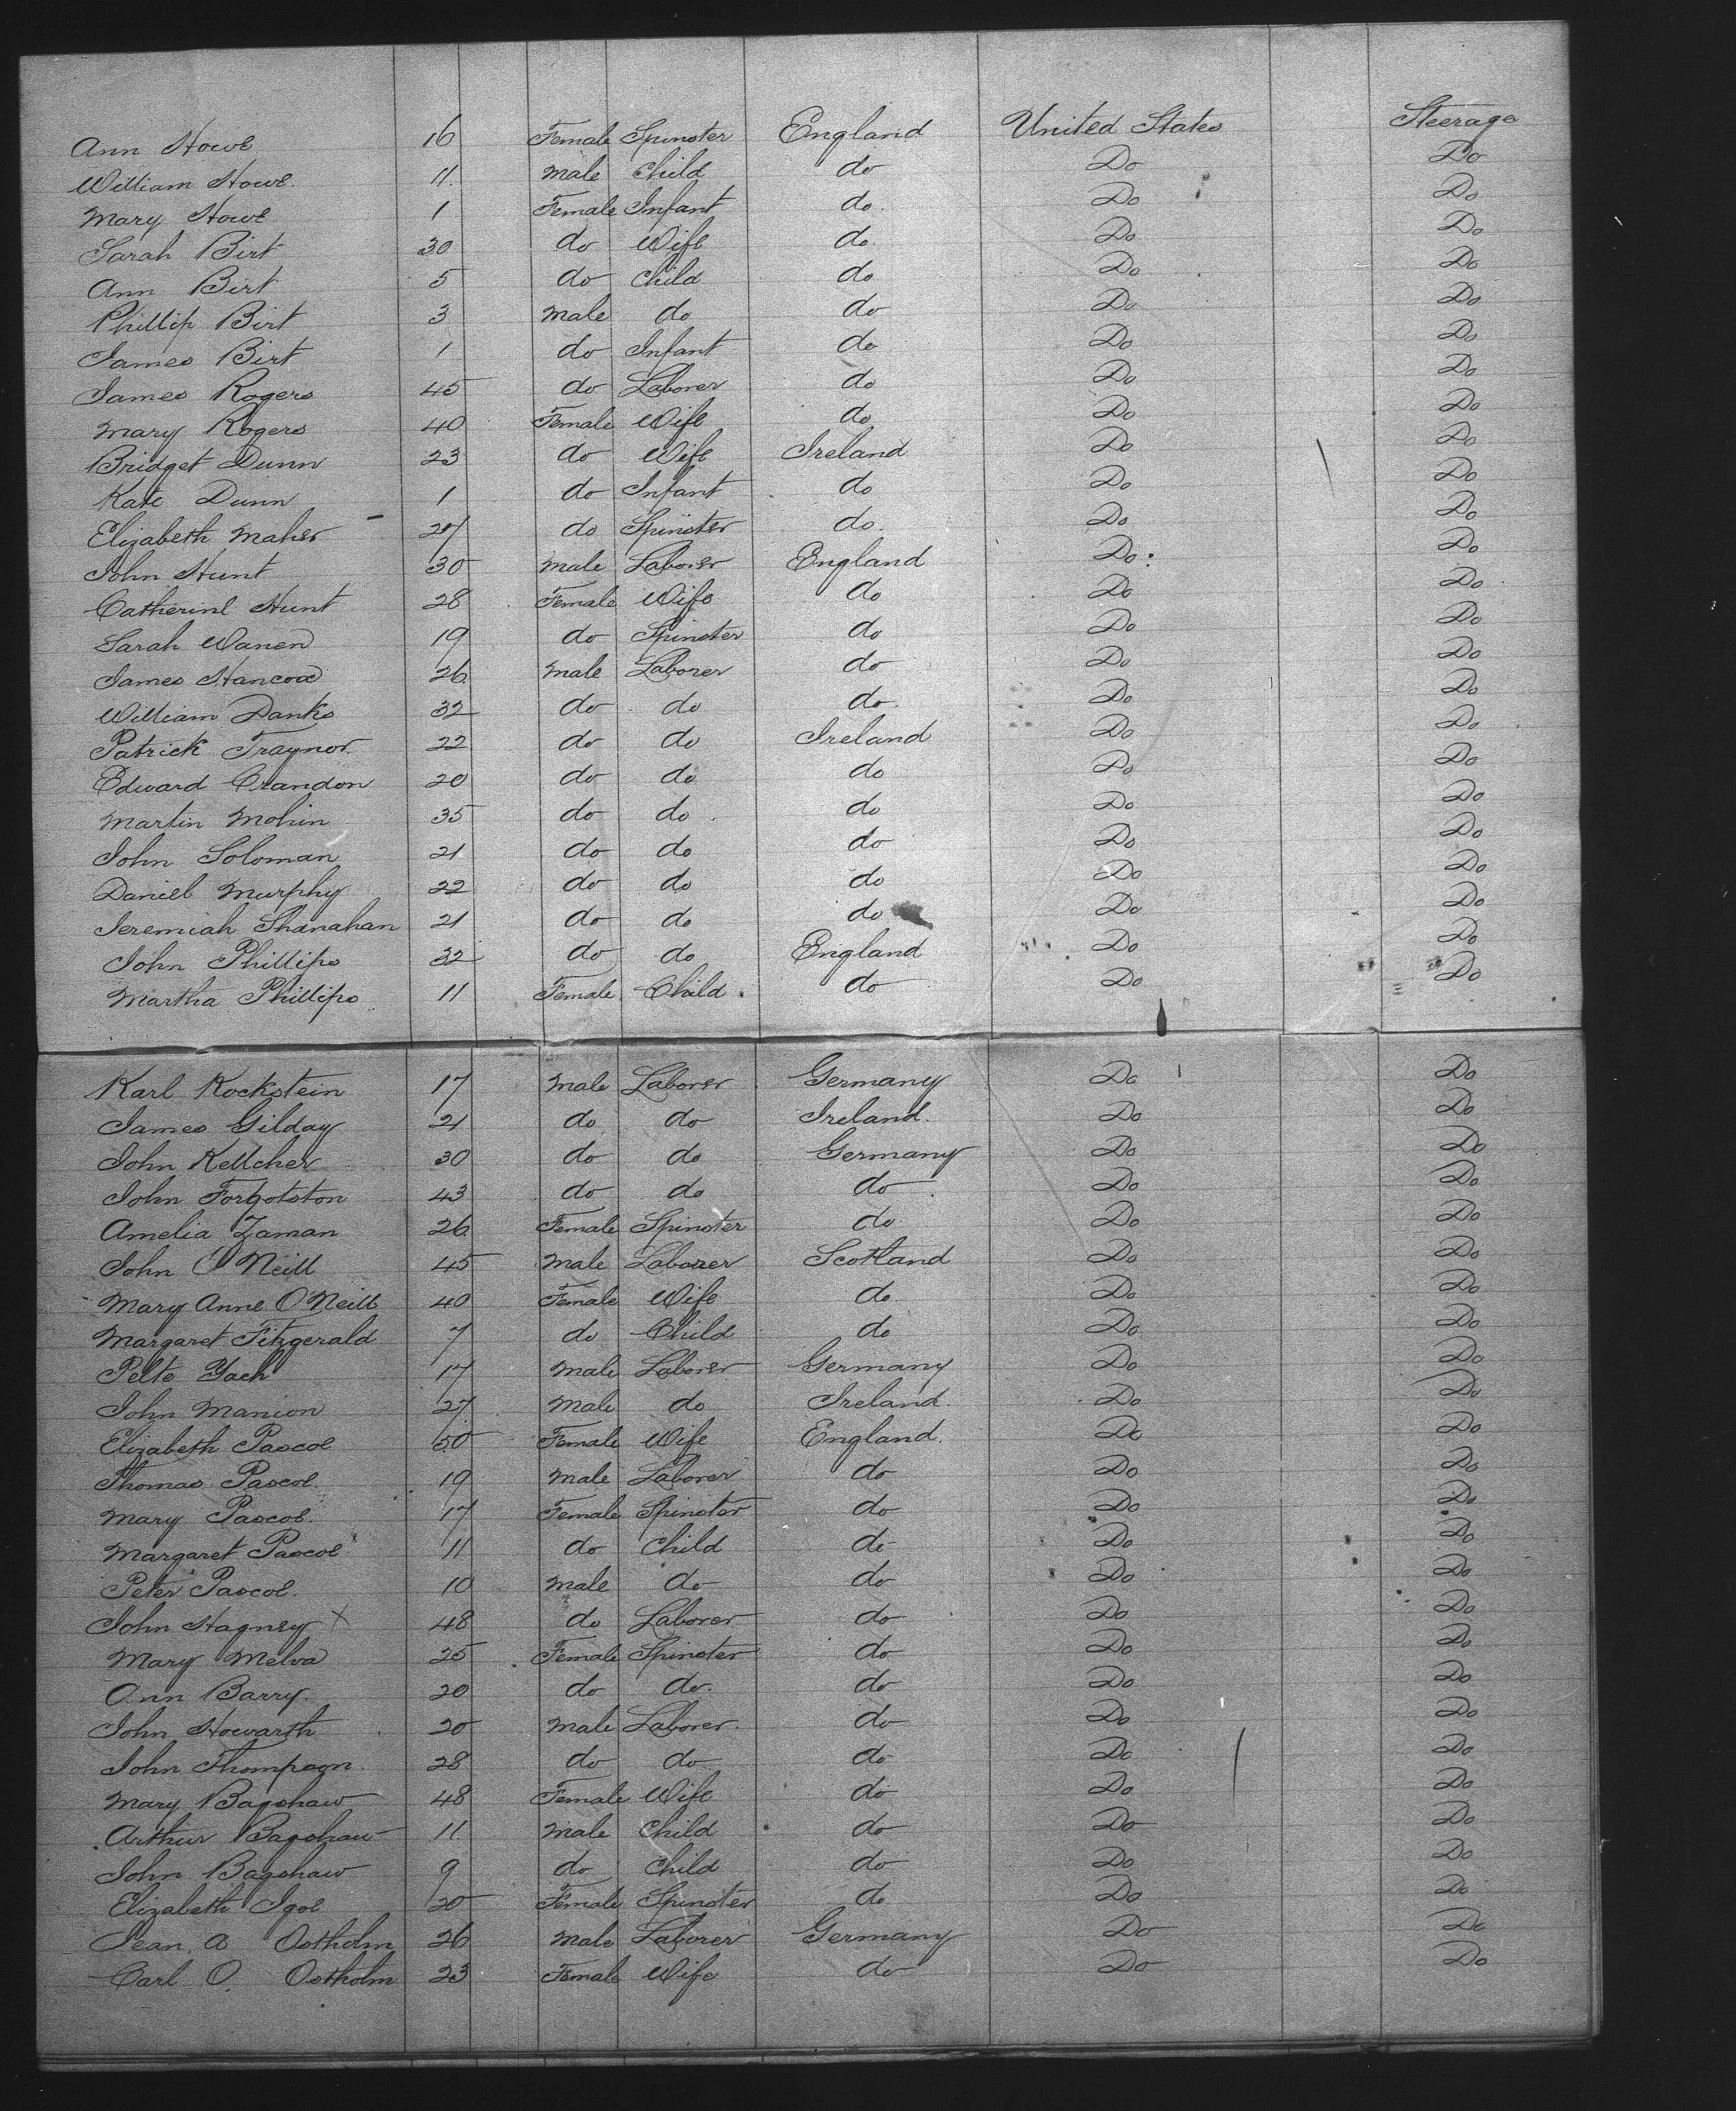 Ann Howe 16 Female Spinster England United States Steerage
William Howe. 11. Male Child do Do Do
Mary Howe 1 Female Infant do. Do Do
Sarah Birt 30 do Wife do. Do Do
Ann Birt 5 do Child do Do Do
Phillip Birt 3 Male do do Do Do
James Birt 1 do Infant do Do Do
James Rogers 45 do Laborer do Do Do
Mary Rogers 40 Female Wife do Do Do
Bridget Dunn 23 do Wife Ireland Do Do
Kate Dunn 1 do Infant do Do Do
Elizabeth Maher 27 do Spinster do. Do Do
John Hunt 30 Male Laborer England Do Do
Catherine Hunt 28 Female Wife do Do Do
Sarah Warren 19 do Spinster do Do Do
James Hancox 26 Male Laborer do Do Do
William Danks 32 do do do. Do Do
Patrick Traynor. 22 do do Ireland Do Do
Edward Crandon 20 do do do Do Do
Martin Mohin 35 do do do Do Do
John Soloman 21 do do do Do Do
Daniel Murphy 22 do do do Do Do
Jeremiah Shanahan 21 do do do Do Do
John Phillips 32 do do England Do Do
Martha Phillips 11 Female Child do Do Do
Karl Rockstein 17 Male Laborer Germany Do Do
James Gilday 21 do do Ireland. Do Do
John Kellcher 30 do do Germany Do Do
John Forgotston 43 do do do Do Do
Amelia Zaman 26 Female Spinster do Do Do
John O'Neill 45 Male Laborer Scotland Do Do
Mary Anne O'Neill 40 Female Wife do Do Do
Margaret Fitzgerald 7 do Child do Do Do
Pelte Yach 17 Male Laborer Germany Do Do
John Manion 27 Male do Ireland. Do Do
Elizabeth Pascoe 50 Female Wife England. Do Do
Thomas Pascoe. 19 Male Laborer do Do Do
Mary Pascoe. 17 Female Spinster do Do Do
Margaret Pascoe 11 do Child do Do Do
Peter Pascoe. 10 Male do do Do Do
John Hagney X 48 do Laborer do Do Do
Mary Melva 25 Female Spinster do Do Do
Ann Barry. 20 do do. do Do Do
John Howarth 20 Male Laborer. do Do Do
John Thompson. 28 do do do Do Do
Mary Bagshaw 48 Female Wife do Do Do
Arthur Bagshaw 11 Male Child do Do Do
John Bagshaw 9 do Child do Do Do
Elizabeth Igoe 20 Female Spinster do Do Do
Jean. A Ostholm 26 Male Laborer Germany Do Do
Carl O. Ostholm 23 Female Wife do Do Do